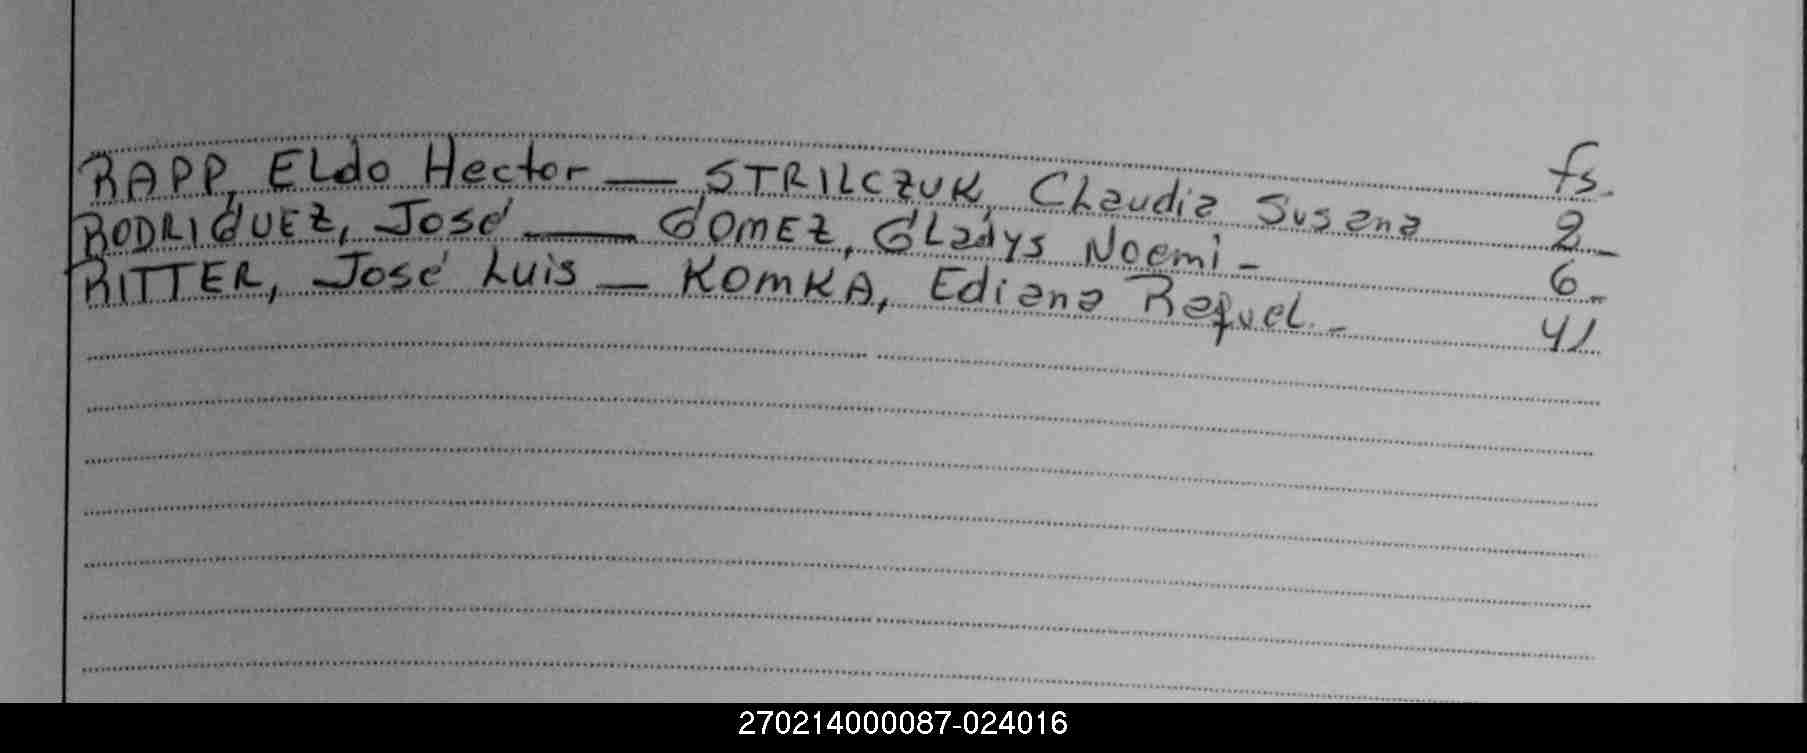 fs.
RAPP, ELdo Hector — STRILCZUK, CLaudia Susana 2 -
RODRIGUEZ, José — GOMEZ, GLadys Noemi - 6 -
RITTER, José Luis — KOMKA, Ediana Raquel. - 41
270214000087-024016